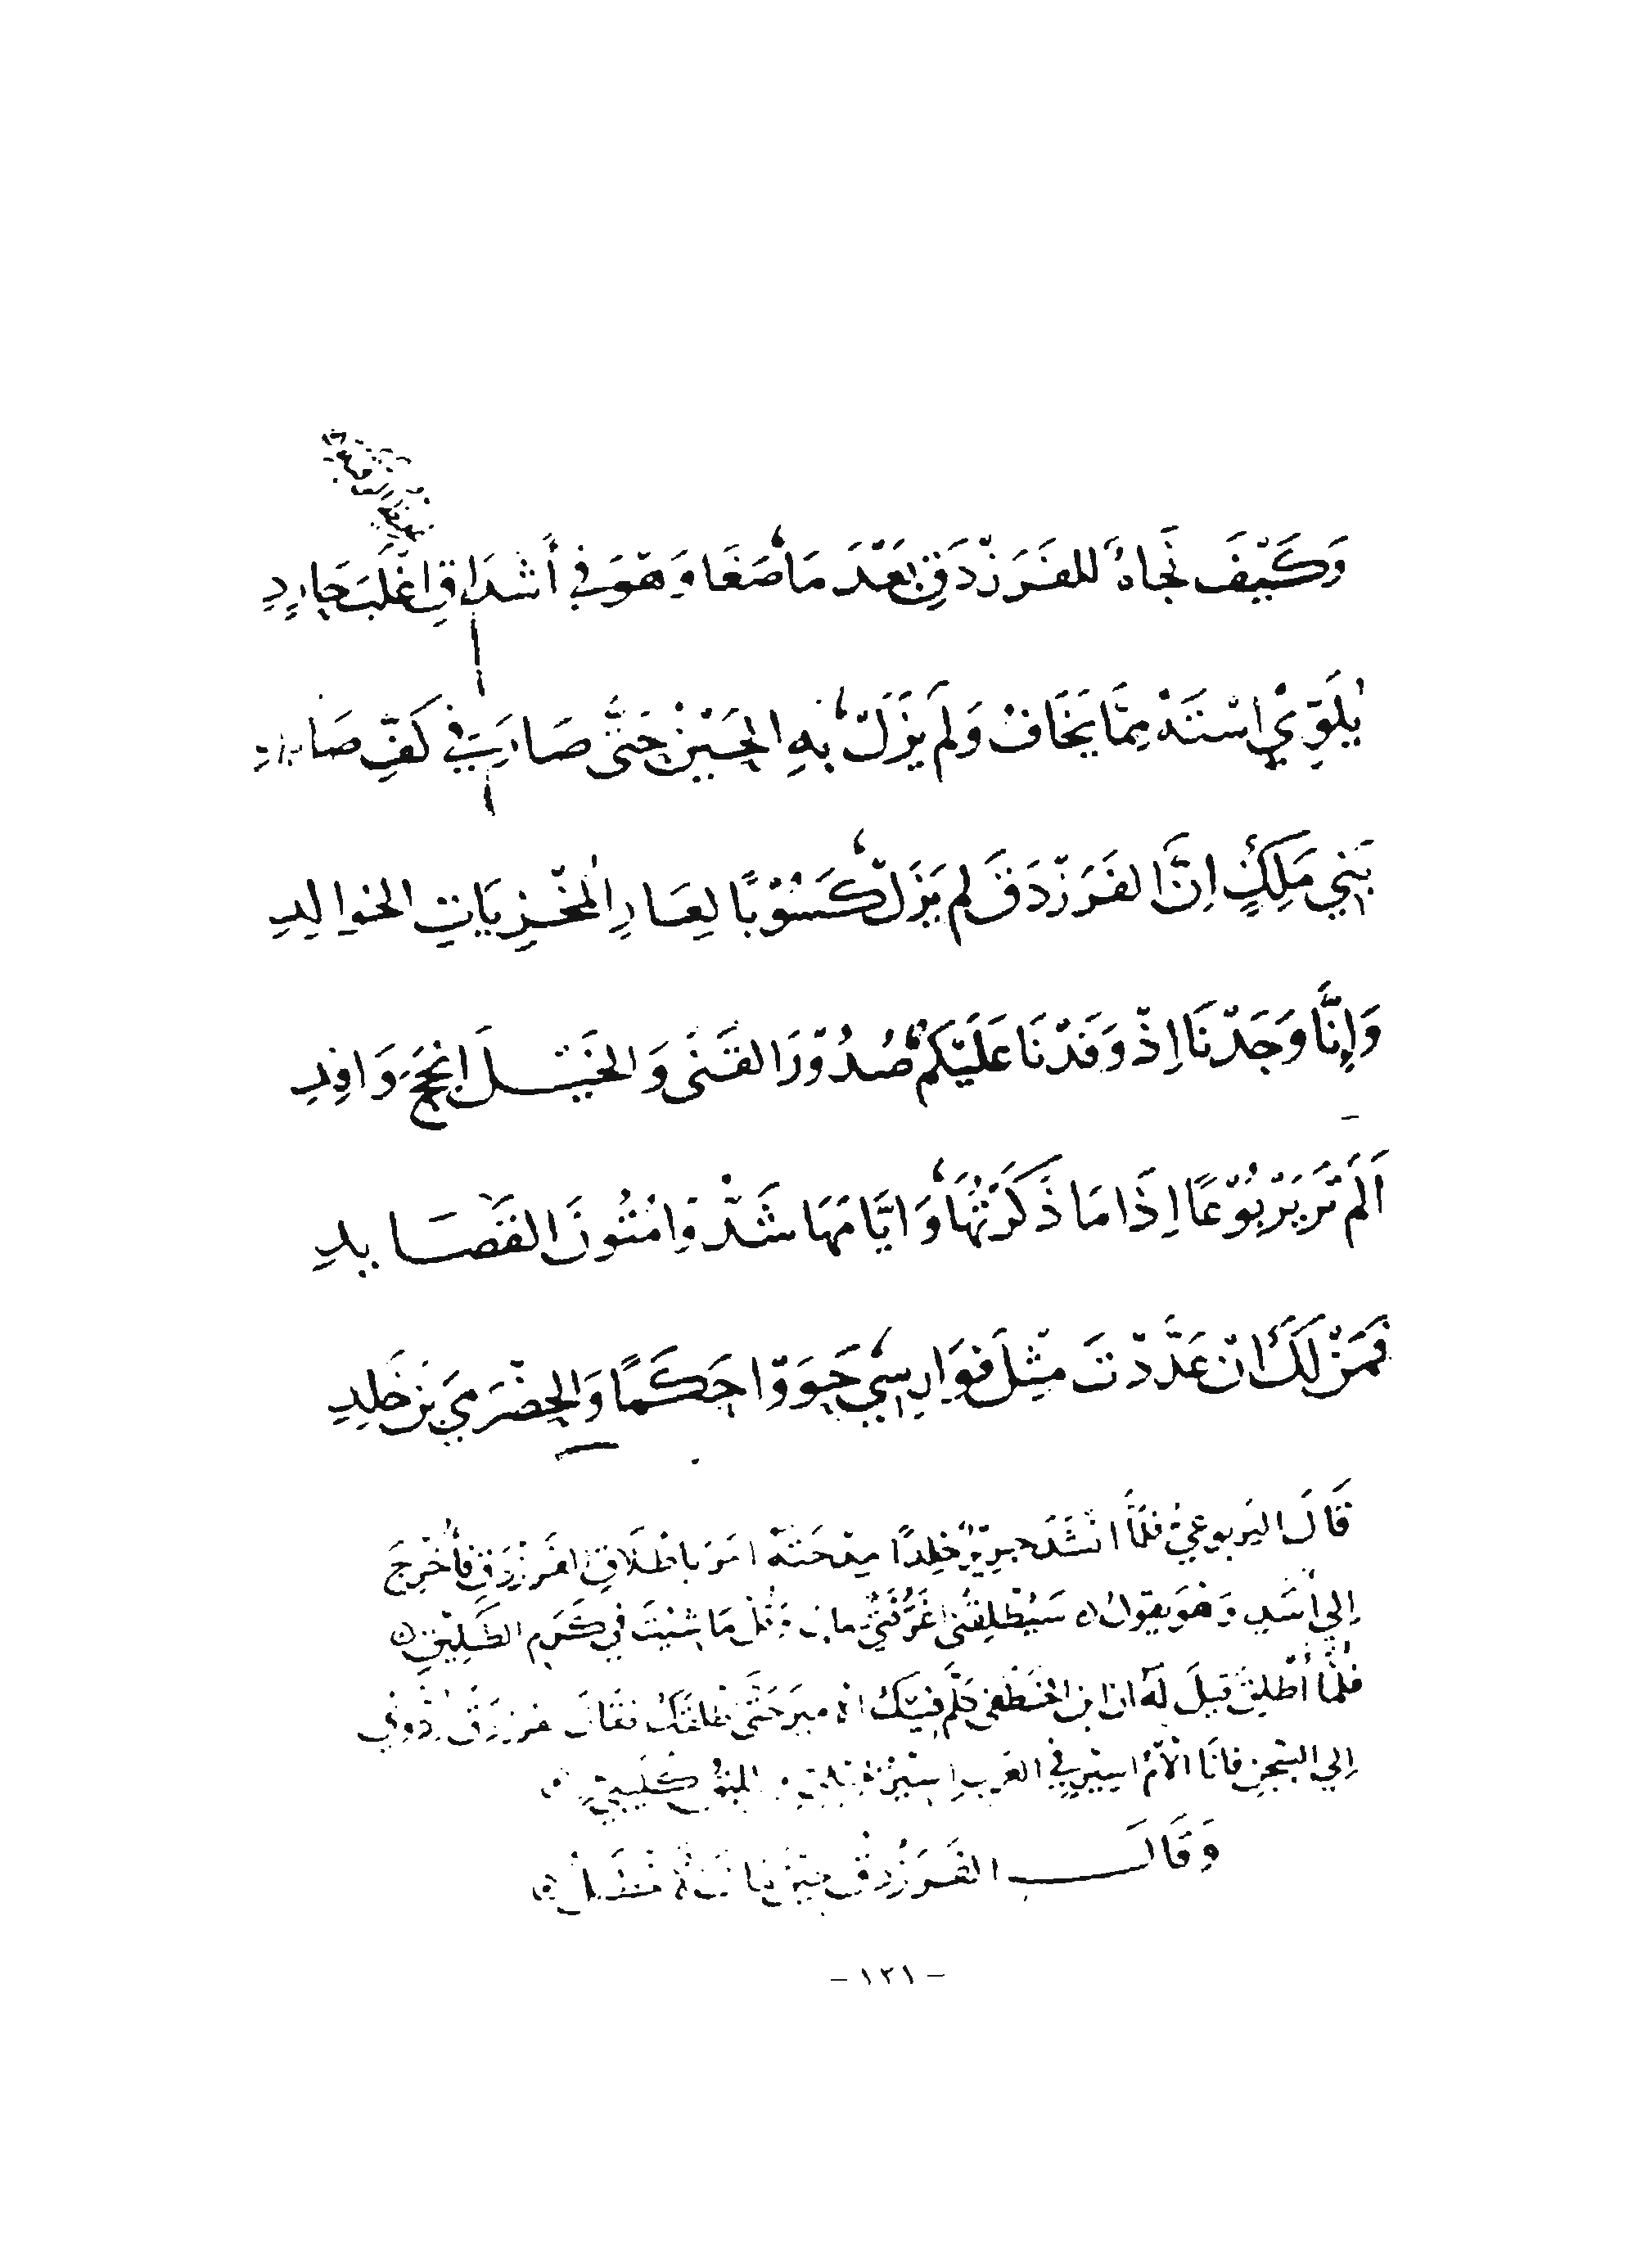 وَكَيْفَ نَجَاةٌ لِلفَرَزْدَقِ بَعْدَ مَا ضَغَا وَهْوَ فِي أَشْدَاقِ اغْلَبَ حَارِدِ
يُلَوِّي اسْتَهُ مِمَّا يَخَافُ وَلَم يَزَلْ بِهِ الحَيْنُ حَتَّى صَارَ فِي كَفِّ صَا
بَنِي مَلِكٍ اِنَّ الفَرَزْدَقَ لم يَزَلْ كَسُوْبًا لِعَارِ المُخْزِيَاتِ الخَوالِدِ
وَإِنَّا وَجَدْنَا اِذْ وَفَدْنَا عَلَيْكُمُ صُدُوْرَ القَنَى وَالخَيْلَ انْجَحَ وَافِدِ
اَلَم تَرَ يَرْبُوْعًا اِذَا مَا ذَكَرْتُهَا وَايَّامَهَا شَدُّوْا مُتُونَ القَصَايِدِ
فَمَنْ لَكَ انْ عَدَّدْتَ مِثْلَ فَوَارِسِي حَوَوْا حَكَمًا وَالحِضْرَمِيَ بنَ خَلِدِ
قَالَ اليَربوعيُ فلَمَّا انْشَدَ جريرٌ خلِدًا مِدْحَتَهُ امَرَ باطْلَاقِ الفَرَزْدَقِ فأُخْرِجَ
إِلى أسَدٍ وَهْوَ يقولُ سَيُطْلِقُنى اغَرُّ مَا شِئْتَ في كَرَمِ الطَلِيْقِ
فلَمَّا أُطْلِقَ قيلَ لَهُ ان ابن الخَطَفى كلَّم فِيْكَ الامير حَتَّى فقَالَ رُدُّونِي
إلى السِجْنِ فانَا الْأَمُ اسِيْرٍ في العَرَبِ اسِيْرُ كُلَيْبِيٍّ
وَقَالَ الفَرَزْدَقُ
- ١٢١ -